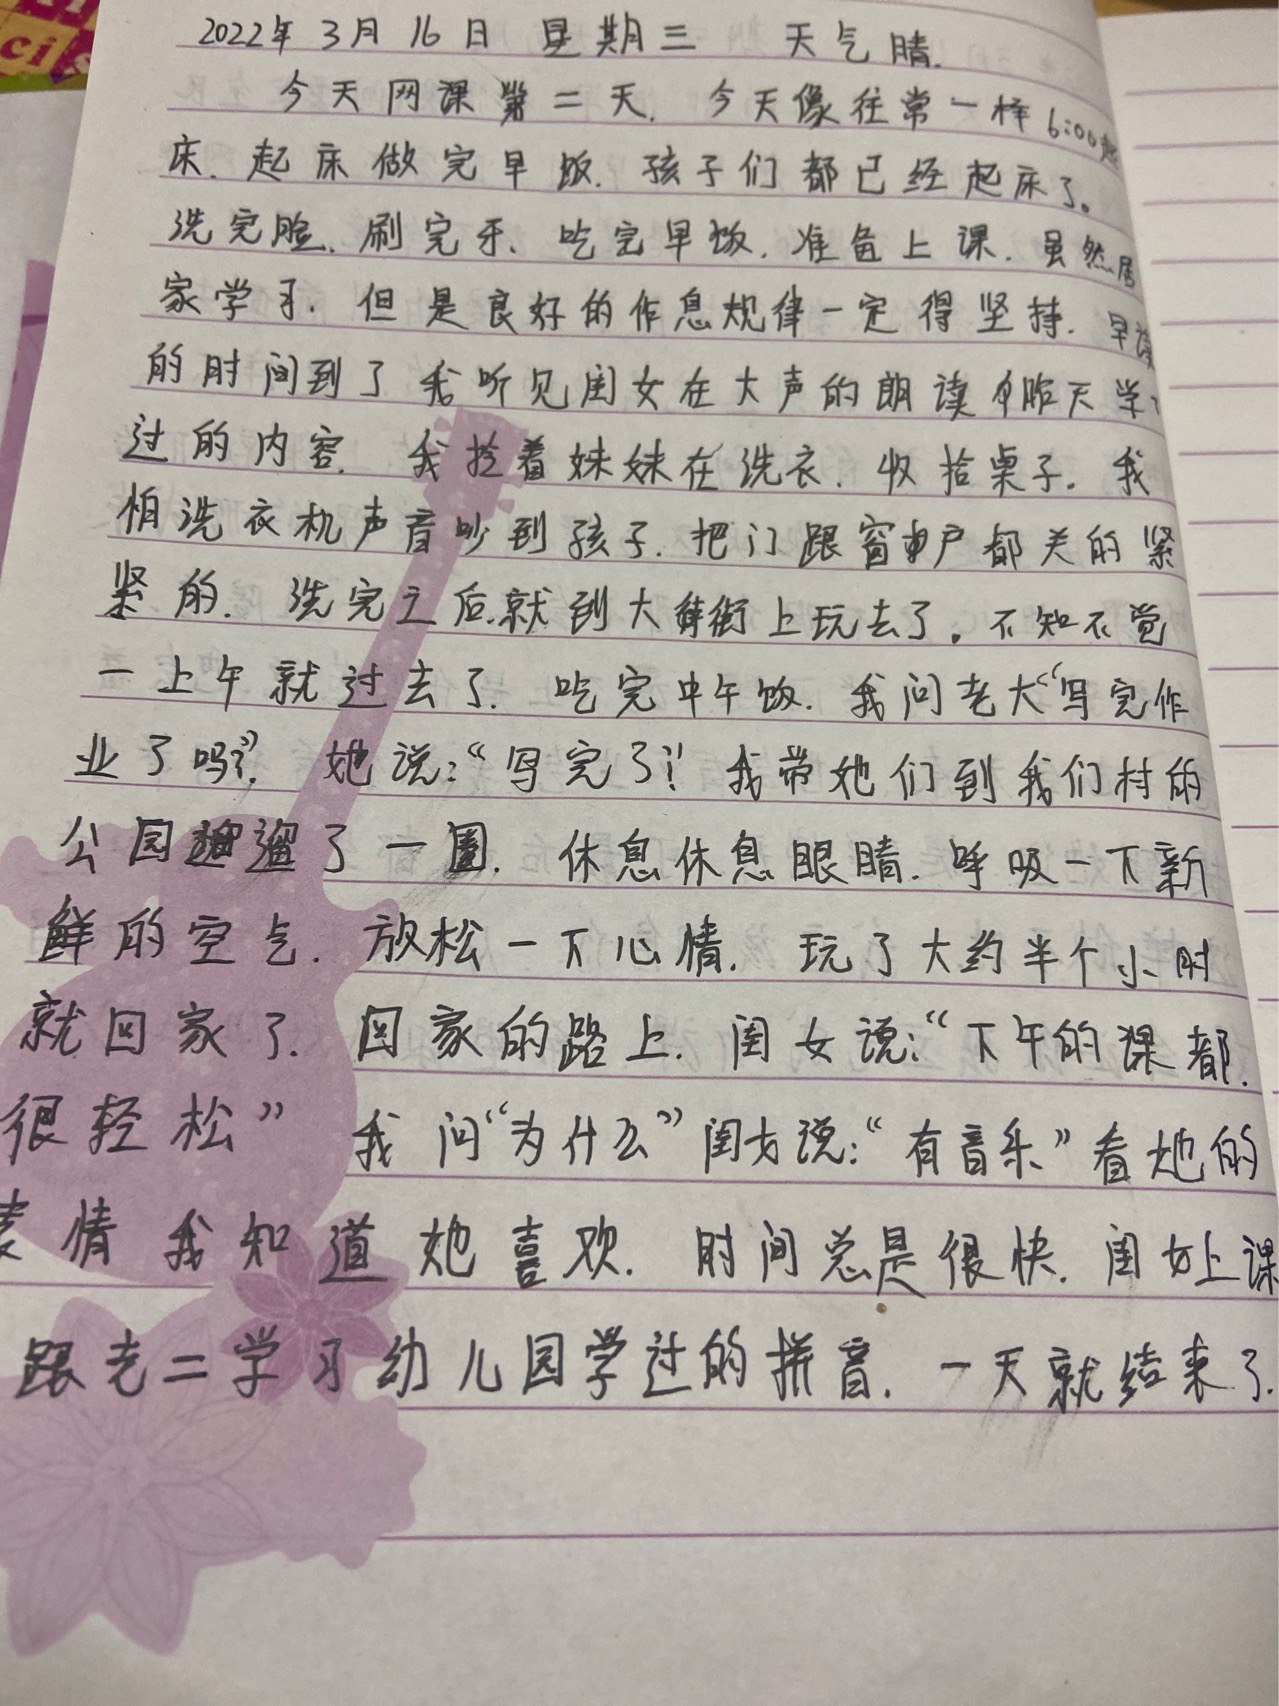 ci
2022年 3月 16日 星期三 天气晴.
今天网课第二天. 今天像往常一样6:00起
床. 起床做完早饭. 孩子们都已经起床了。
洗完脸. 刷完牙. 吃完早饭. 准备上课. 虽然居
家学习. 但是良好的作息规律一定得坚持. 早读
的时间到了 我听见闺女在大声的朗读昨天学
过的内容. 我抢着妹妹在洗衣. 收拾桌子. 我
怕洗衣机声音吵到孩子. 把门跟窗户都关的紧
紧的. 洗完之后.就到大街上玩去了。不知不觉
一上午就过去了. 吃完中午饭. 我问老大“写完作
业了吗?” 她说:“写完了!” 我带她们到我们村的
公园遛了一圈. 休息休息眼睛. 呼吸一下新
鲜的空气. 放松一下心情. 玩了大约半个小时
就回家了. 回家的路上. 闺女说:“下午的课都
很轻松” 我问“为什么”闺女说:“有音乐”看她的
表情我知道她喜欢. 时间总是很快. 闺女上课
跟老二学习幼儿园学过的拼音. 一天就结束了.